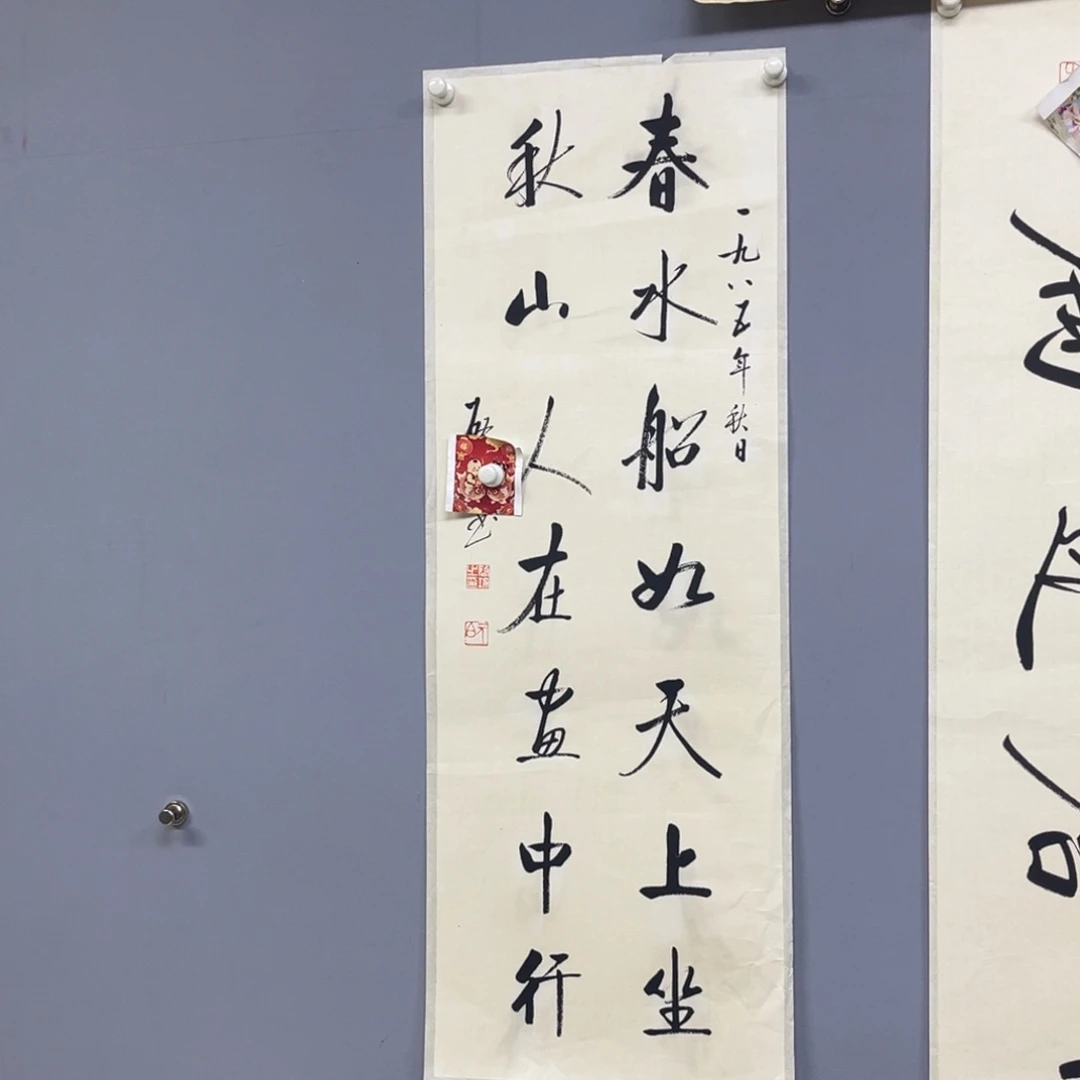 一九八五年秋日
春水船如天上坐
秋山人在画中行
启
书